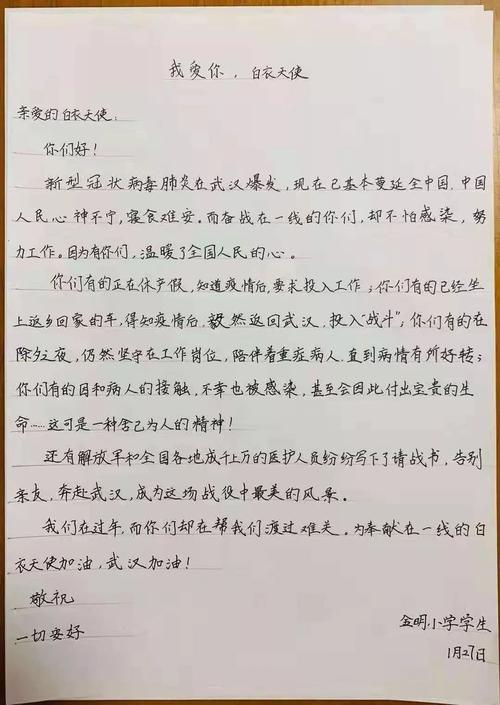 我爱你，白衣天使
亲爱的白衣天使：
你们好！
新型冠状病毒肺炎在武汉爆发，现在已基本蔓延全中国，中国
人民心神不宁，寝食难安。而奋战在一线的你们，却不怕感染，努
力工作。因为有你们，温暖了全国人民的心。
你们有的正在休产假，知道疫情后，要求投入工作；你们有的已经坐
上返乡回家的车，得知疫情后，毅然返回武汉，投入“战斗”；你们有的在
除夕之夜，仍然坚守在工作岗位，陪伴着重症病人，直到病情有所好转；
你们有的因和病人的接触，不幸也被感染，甚至会因此付出宝贵的生
命……这可是一种舍己为人的精神！
还有解放军和全国各地成千上万的医护人员纷纷写下了请战书，告别
亲友，奔赴武汉，成为这场战役中最美的风景。
我们在过年，而你们却在帮我们渡过难关。为奉献在一线的白
衣天使加油，武汉加油！
敬祝
一切安好
金明小学学生
1月27日